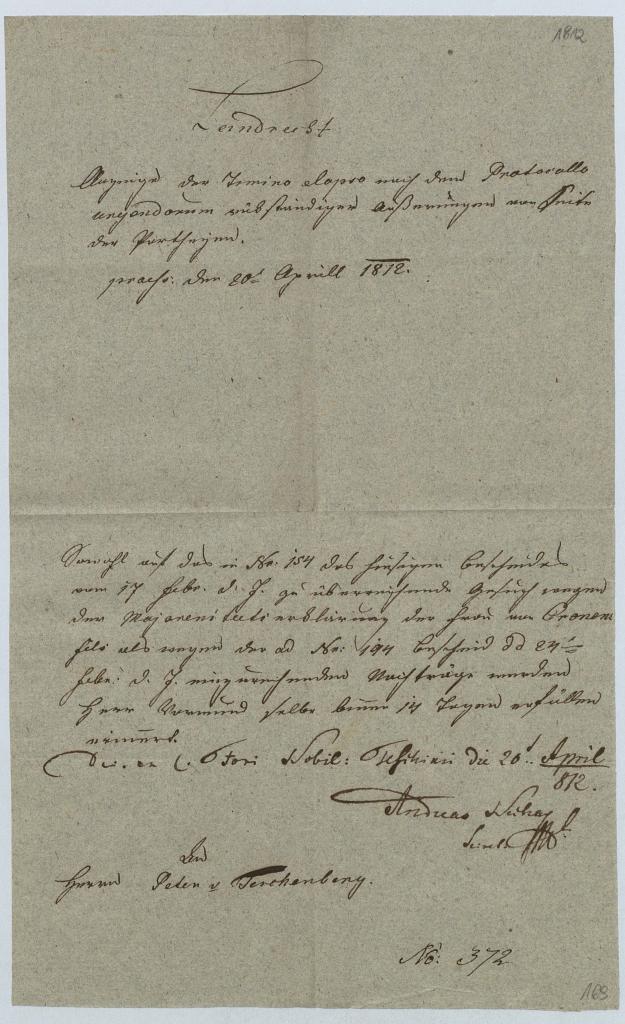 1812
Landrecht
Anzeige der Termino elapso nach dem Protocollo
urgendorum rükständiger Äußerungen von Seite
der Partheyen.
praes: den 20t Aprill 1812.
Sowohl auf das in No: 154 des hiesigen Bescheides
vom 17 Febr. d. J. zu überreichende Gesuch wegen
der Majorenitaetserklärung der Frau von Cronen
fels als wegen der ad No: 194 Bescheid dd 24t
Febr: d. J. einzureichenden Nachträge werden
Herr Vormund selbe binnen 14 Tagen erfüllen
erinnert.
Fori Nobil: Teschinii die 20t April
812.
Andreas
An
Herrn Peter v
No: 372
169